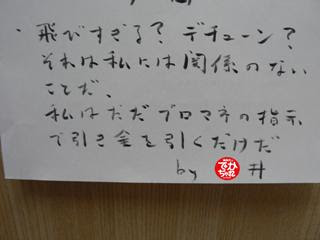 ・飛びすぎる？デチューン？
それは私には関係のない
ことだ。
私はただプロマネの指示
で引き金を引くだけだ
by 井